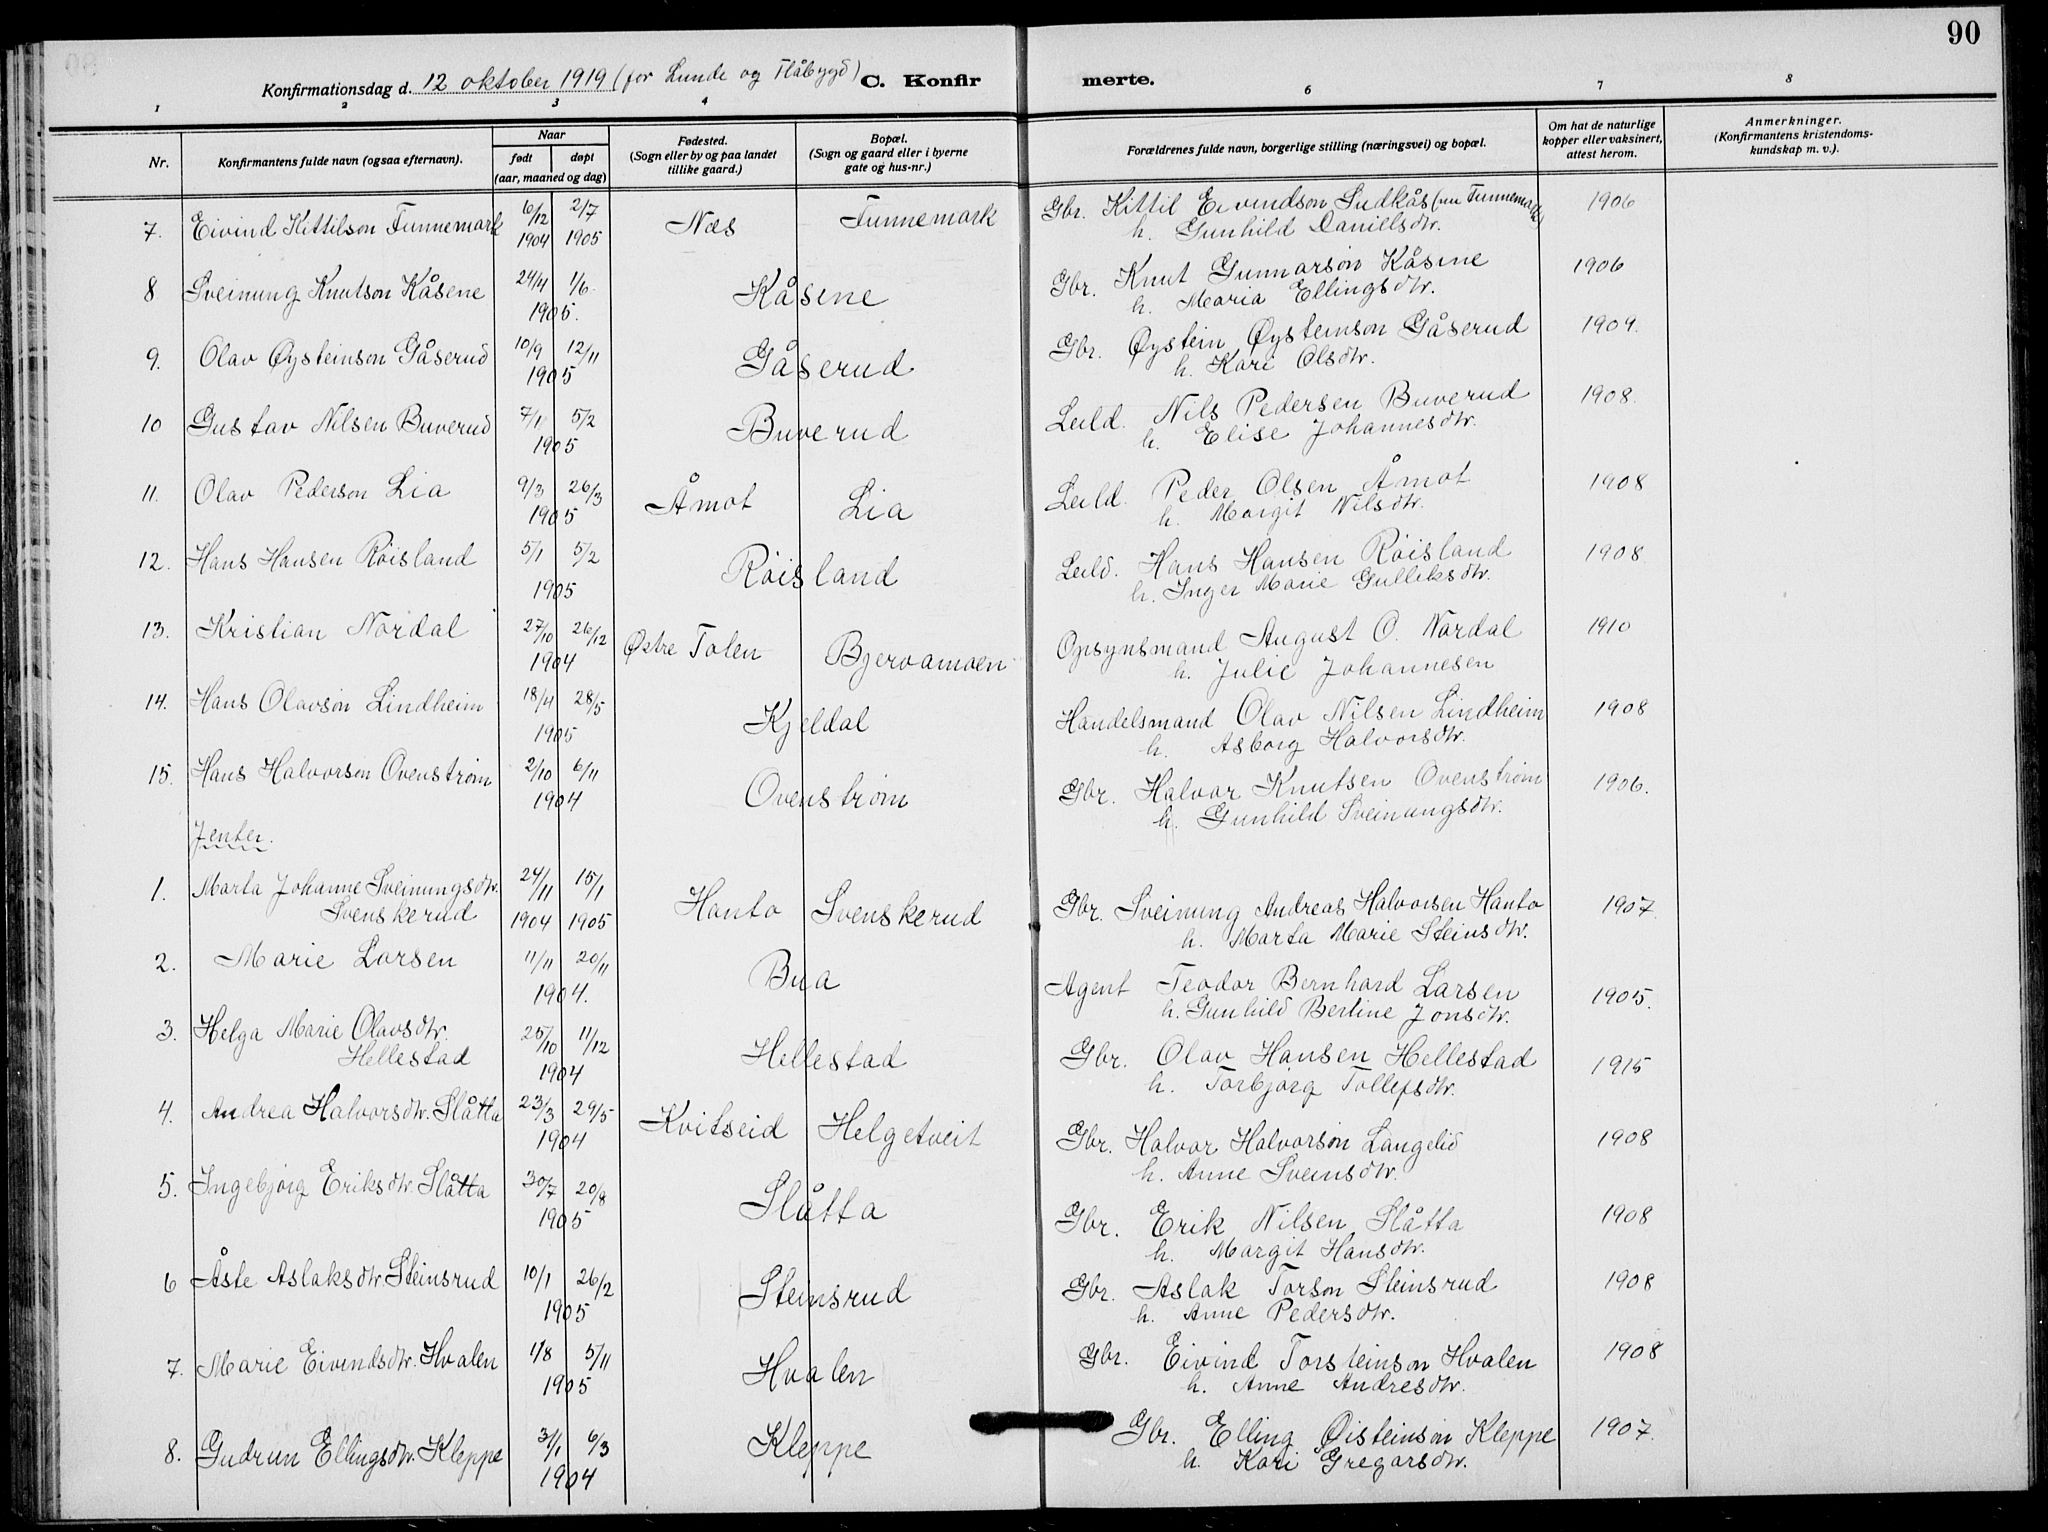 90
Konfirmationsdag d. 12 oktober 1919 (for Lunde og Flåbygd) C. Konfirmerte.
1 2 3 4 6 7 8
Nr. Konfirmantens fulde navn (ogsaa efternavn). Naar født døpt (aar, maaned og dag) Fødested. (Sogn eller by og paa landet tillike gaard.) Bopæl. (Sogn og gaard eller i byerne gate og hus-nr.) Forældrenes fulde navn, borgerlige stilling (næringsvei) og bopæl. Om hat de naturlige kopper eller vaksinert, attest herom. Anmerkninger. (Konfirmantens kristendomskundskap m. v.).
7. Eivind Kittilson Tunnemark 6/12 1904 2/7 1905 Næs Tunnemark Gbr. Kittil Eivindson Sudkås (nu Tunnemark) 1906
h. Gunhild Danielsdtr.
8 Sveinung Knutson Kåsene 24/4 1/6 1905. Kåsene Gbr. Knut Gunnarson Kåsene 1906
h. Maria Ellingsdtr.
9. Olav Øysteinson Gåserud 10/9 12/11 1905 Gåserud Gbr. Øystein Øysteinson Gåserud 1909.
h. Kari Olsdtr.
10 Gustav Nilsen Buverud 7/1 5/2 1905 Buverud Leild. Nils Pedersen Buverud 1908.
h. Elise Johannesdtr.
11. Olav Pederson Lia 9/3 26/3 1905 Åmot Lia Leild. Peder Olsen Åmot 1908
h. Margit Nilsdtr.
12. Hans Hansen Röisland 5/1 5/2 1905 Röisland Leild. Hans Hansen Röisland 1908
h. Inger Marie Gulleksdtr.
13. Kristian Nordal 27/10 26/12 1904 Østre Toten Bjervamoen Opsynsmand August O. Nordal 1910
h. Julie Johannesen
14. Hans Olavson Lindheim 18/4 28/5 1905 Kjeldal Handelsmand Olav Nilsen Lindheim 1908
h. Asborg Halvorsdtr.
15. Hans Halvorson Ovenstrøm 2/10 6/11 1904 Ovenstrøm Gbr. Halvor Knutsen Ovenstrøm 1906.
h. Gunhild Sveinungsdtr.
Jenter.
1. Marta Johanne Sveinungsdtr. Svenskerud 24/11 1904 15/1 1905 Hanto Svenskerud Gbr. Sveinung Andreas Halvorsen Hanto 1907.
h. Marta Marie Steinsdtr.
2. Marie Larsen 11/11 20/11 1904. Bua Agent Teodor Bernhard Larsen 1905.
h. Gunhild Bertine Jonsdtr.
3. Helga Marie Olavsdtr. Hellestad 25/10 11/12 1904 Hellestad Gbr. Olav Hansen Hellestad 1915
h. Torbjørg Tollefsdtr.
4. Andrea Halvorsdtr. Slåtta 23/3 29/5 1904 Kvitseid Helgetveit Gbr. Halvor Halvorson Langelid 1908
h. Anne Sveinsdtr.
5. Ingebjørg Eriksdtr. Slåtta 30/7 20/8 1905 Slåtta Gbr. Erik Nilsen Slåtta 1908
h. Margit Hansdtr.
6 Åste Aslaksdtr. Steinsrud 10/1 26/2 1905 Steinsrud Gbr. Aslak Torson Steinsrud 1908
h. Anne Pedersdtr.
7. Marie Eivindsdtr. Hvalen 1/8 5/11 1905 Hvalen Gbr. Eivind Torsteinson Hvalen 1908
h. Anne Andresdtr.
8. Gudrun Ellingsdtr. Kleppe 31/1 6/3 1904 Kleppe Gbr. Elling Øisteinson Kleppe 1907.
h. Kari Gregarsdtr.